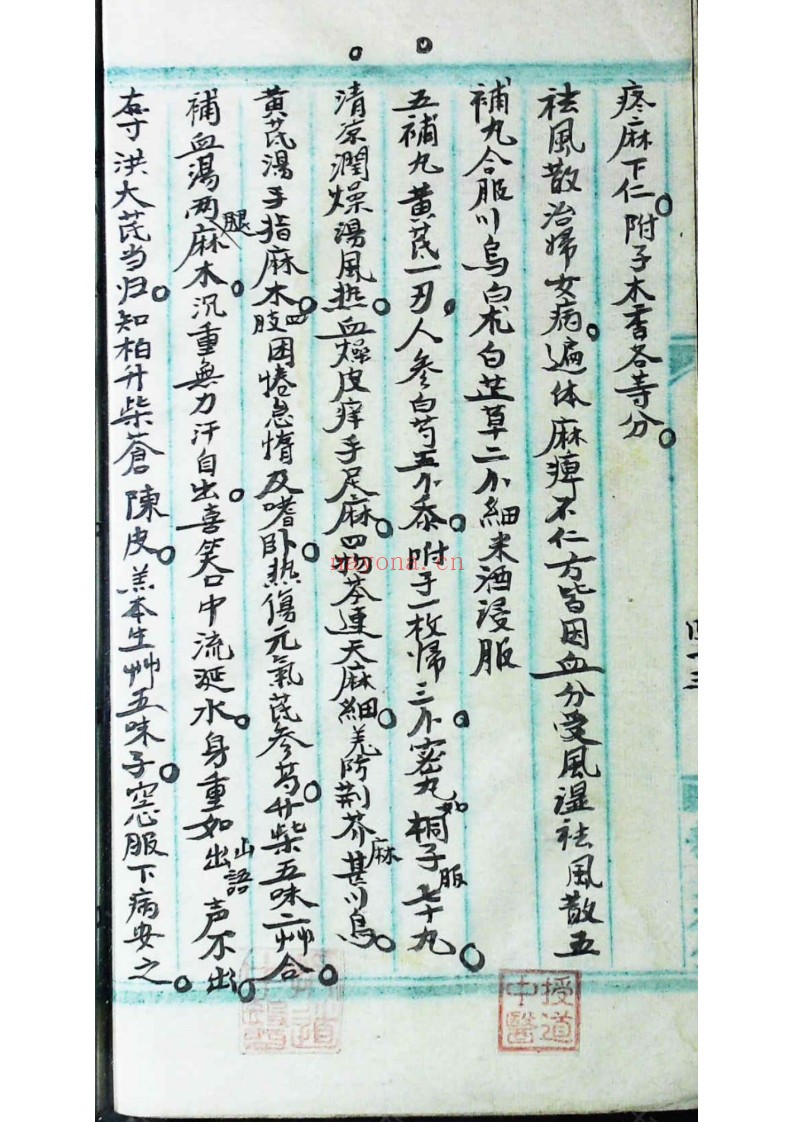 疼麻下仁。附子木香各等分。
祛風散治婦女病。遍体麻痺不仁方皆因血分受風湿祛風散五
補丸合服川烏白术白芷草二个細米酒浸服
五補丸黄芪一刃。人参白芍五个桼。附子一枚帰三个。密丸如桐子服七十丸。
清凉潤燥湯風热。血燥皮痒手足麻。四物芩連天麻細。羌防荆芥麻甚川烏。
黄芪湯手指麻木。四肢困惓怠惰及嗜卧。热傷元氣芪参葛。升柴五味二艸合。
補血湯两腿麻木。沉重無力汗自出。喜笑口中流涎水。身重如山語声不出。
右寸洪大芪当归。知柏升柴蒼陳皮。羔本生艸五味子。空心服下病安之。
四十三
授道中醫
nayona.cn